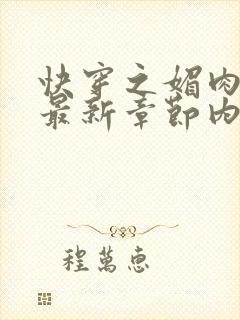 快穿之媚肉
最新章節内
程萬惠